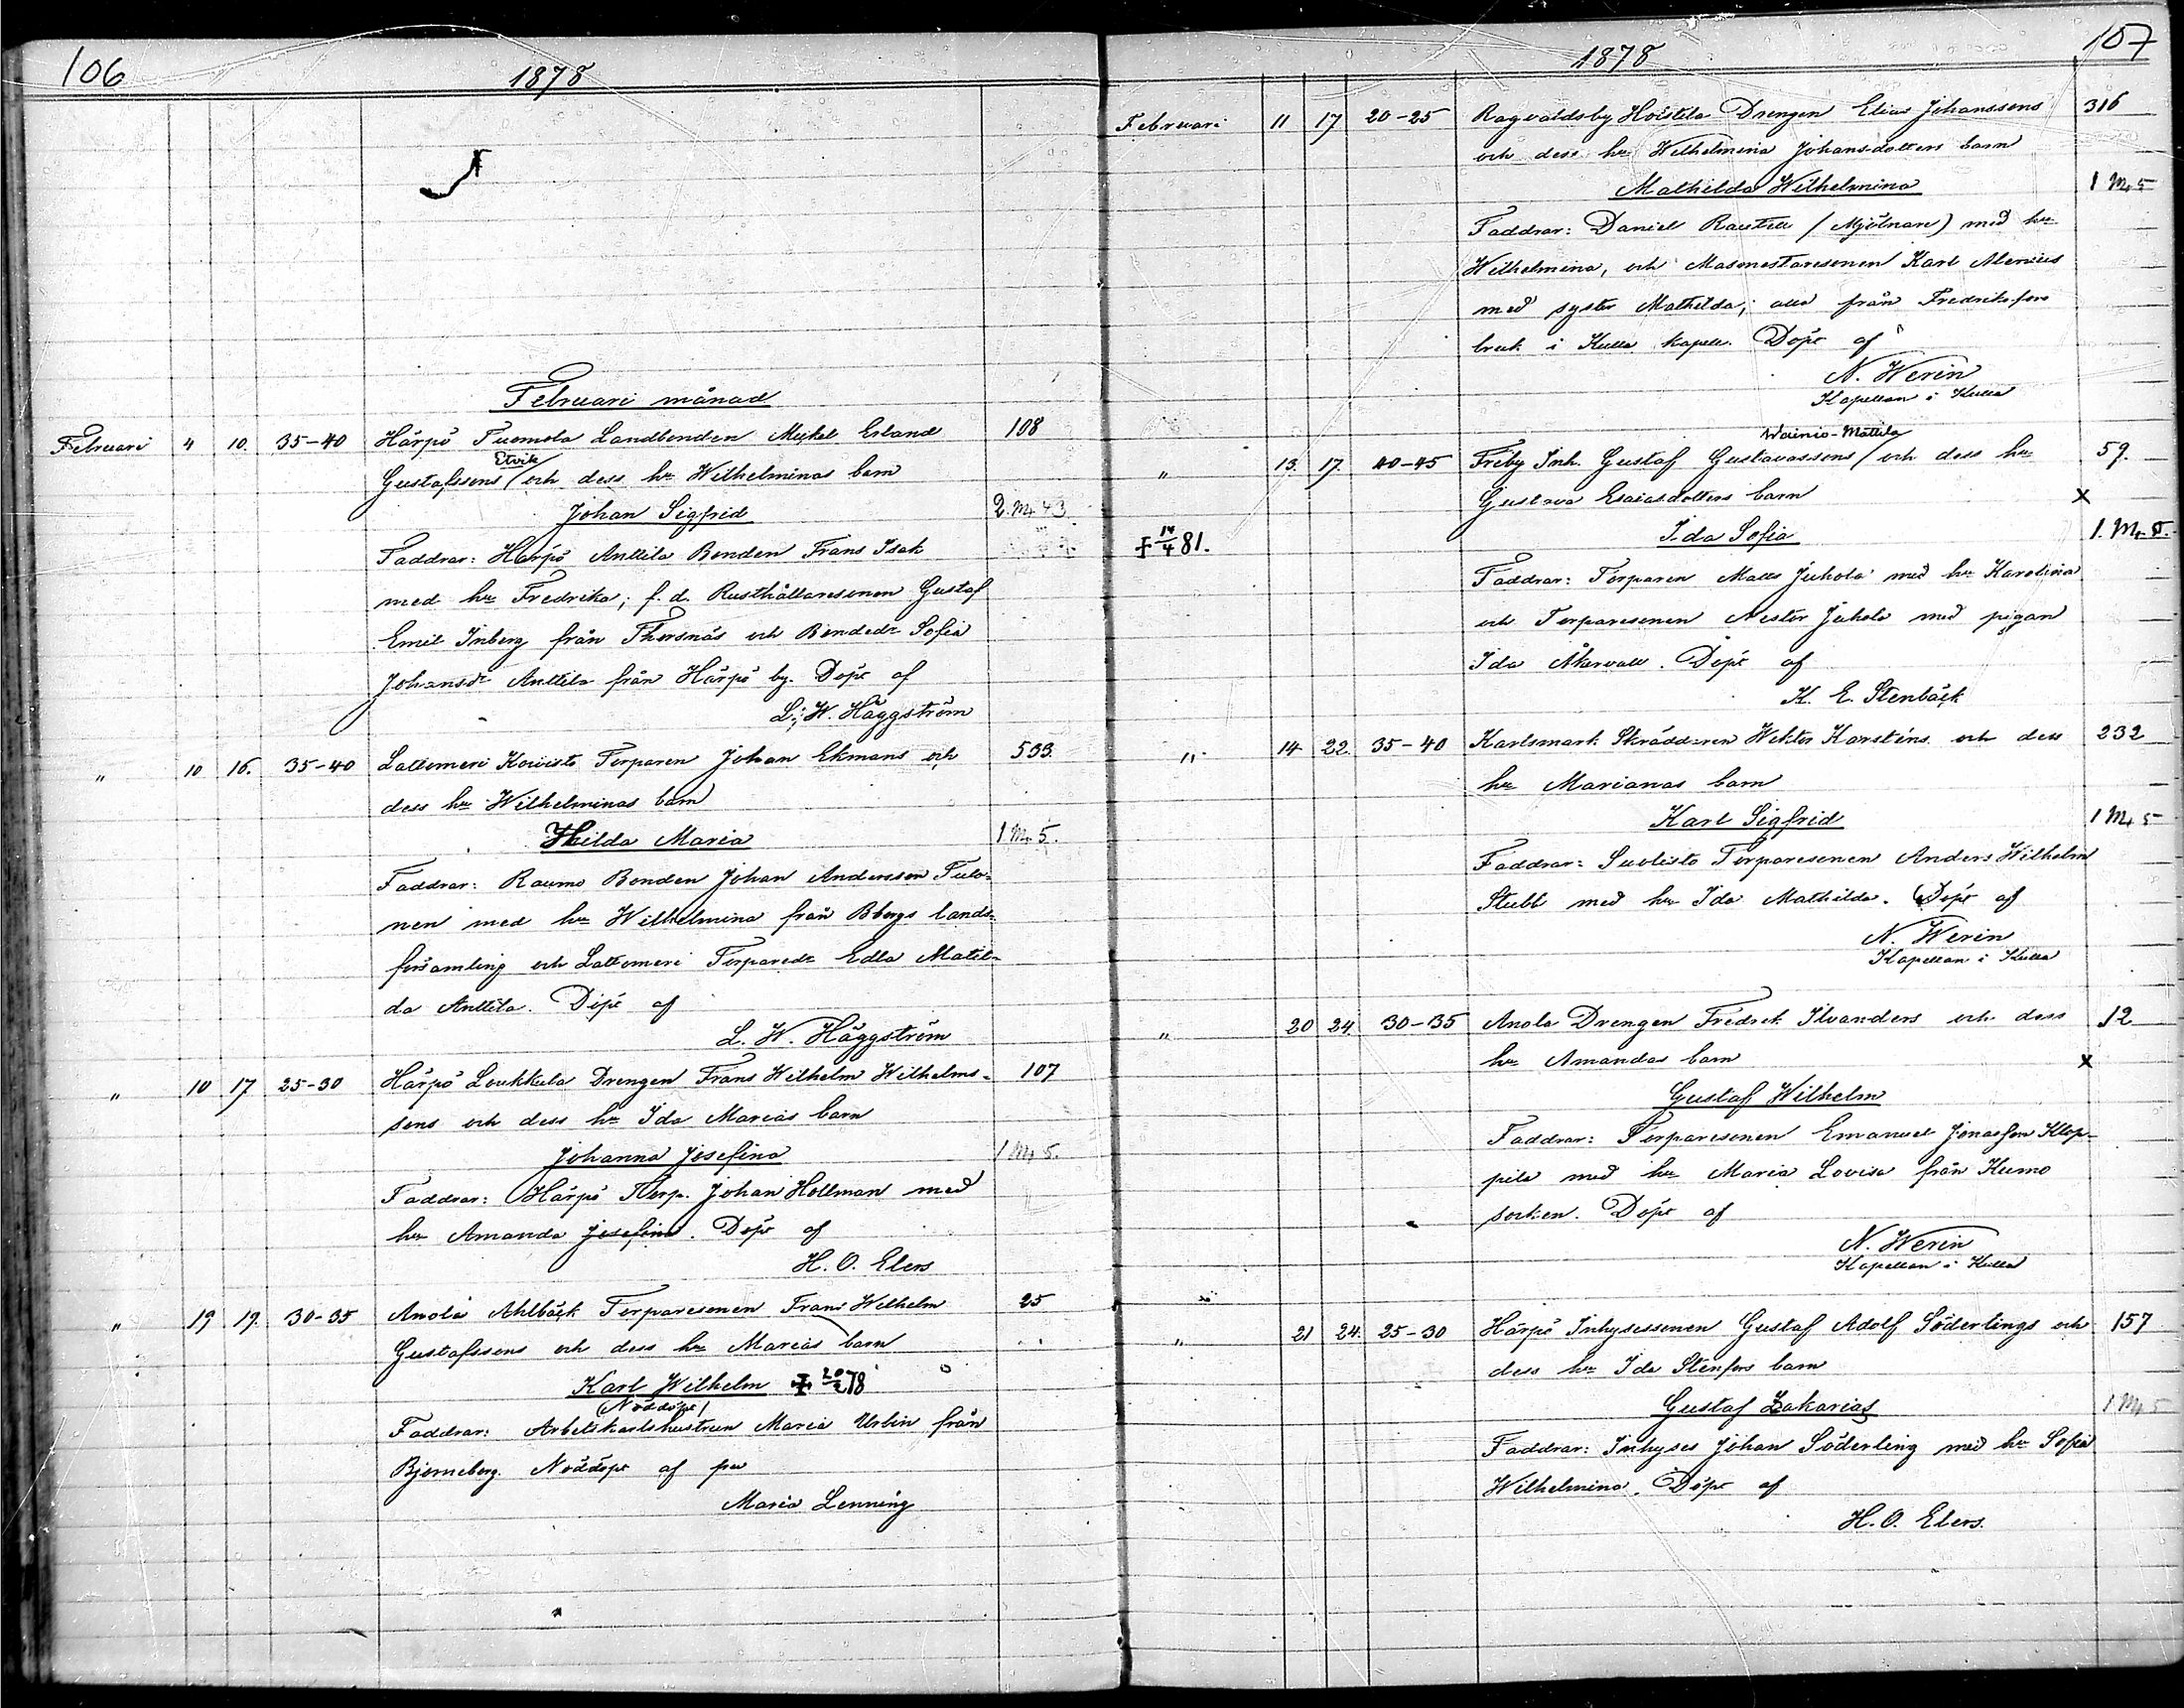 106
1878
Februari månad
Februari 4 10. 35-40 Härpö Tuomola Landbonden Mickel Erland 108
Etvik
Gustafssons / och dess hu Wilhelminas barn
Johan Sigfrid 2 Mk 43
Faddrar: Härpö Anttila Bonden Frans Isak
med hu Fredrika; f. d. Rusthållaresonen Gustaf
Emil Inberg från Thorsnäs och Bondedr Sofia
Johansdr Anttila från Härpö by. Döpt af
L. W. Häggström
" 10 16. 35-40 Lattomeri Koivisto Torparen Johan Ekmans och 533.
dess hu Wilhelminas barn
Hilda Maria 1 Mk 5.
Faddrar: Raumo Bonden Johan Andersson Tulo-
nen med hu Wilhelmina från Bbergs lands-
församling och Lattomeri Torparedr Edla Matil-
da Anttila. Döpt af
L. W. Häggström
" 10 17 25-30 Härpö Loukkula Drengen Frans Wilhelm Wilhelms- 107
sons och dess hu Ida Marias barn
Johanna Josefina 1 Mk 5.
Faddrar: Härpö Torp. Johan Hollman med
hu Amanda Josefina. Döpt af
H. O. Elers
" 19 19. 30-35 Anola Ahlbäck Torparesonen Frans Wilhelm 25
Gustafssons och dess hu Marias barn
Karl Wilhelm ‡ 20/2 78
(Nöddöpt)
Faddrar: Arbetskarlshustrun Maria Urlin från
Bjorneborg. Nöddöpt af fru
Maria Lenning
107
1878
Februari 11 17 20-25 Ragvaldsby Hoistila Drengen Elias Johanssons 316
och dess hu Wilhelmina Johansdotters barn
Mathilda Wilhelmina 1 Mk 5
Faddrar: Daniel (Mjölnare) med hu
Wilhelmina, och Masmestaresonen Karl Alenius
med syster Mathilda; alla från Fredriksfors
bruk i Kulla kapell. Döpt af
N. Werin
Kapellan i Kulla
Wainio-Mattila
" 13. 17. 40-45 Friby Inh. Gustaf Gustavassons / och dess hu 59.
Gustava Esaiasdotters barn x
Ida Sofia 1. Mk 5.
‡ 14/4 81.
Faddrar: Torparen Matts Juhola med hu Karolina
och Torparesonen Nestor Juhola med pigan
Ida Åkervall. Döpt af
K. E. Stenbäck
" 14 22. 35-40 Karlsmark Skräddaren Wiktor Karsténs och dess 232
hu Marianas barn
Karl Sigfrid 1 Mk 5
Faddrar: Suolisto Torparesonen Anders Wilhelm
Stubb med hu Ida Mathilda. Döpt af
N. Werin
Kapellan i Kulla
" 20 24. 30-35 Anola Drengen Fredrik Ilvanders och dess 12
hu Amandas barn x
Gustaf Wilhelm
Faddrar: Torparesonen Emanuel Jonasson Klop-
pila med hu Maria Lovisa från Kumo
socken. Döpt af
N. Werin
Kapellan i Kulla
" 21 24. 25-30 Härpö Inhysessonen Gustaf Adolf Söderlings och 157
dess hu Ida Stenfors barn
Gustaf Zakarias 1 Mk 5
Faddrar: Inhyses Johan Söderling med hu Sofia
Wilhelmina. Döpt af
H. O. Elers.